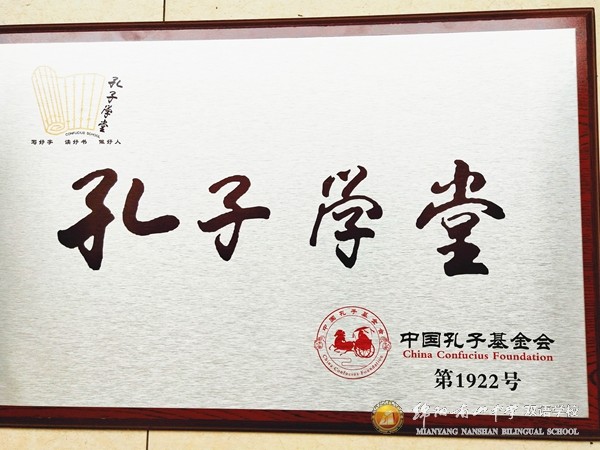 孔子学堂
CONFUCIUS SCHOOL
写好字 读好书 做好人
孔子学堂
中国孔子基金会
China Confucius Foundation
中国孔子基金会
China Confucius Foundation
第1922号
绵阳南山中学双语学校
MIANYANG NANSHAN BILINGUAL SCHOOL